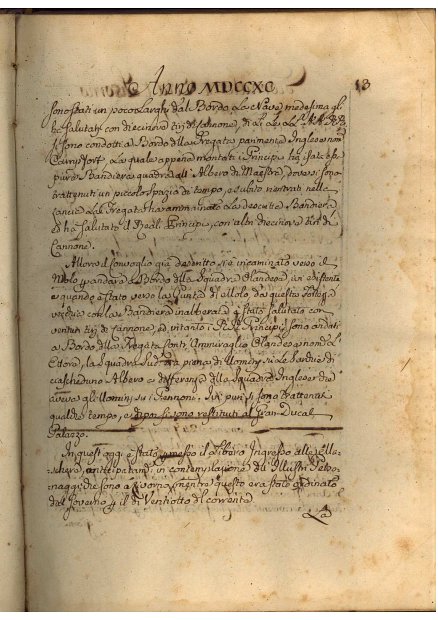 Anno MDCCXC
13
sono stati un poco Larghi dal Bordo La Nave medesima gli
ha salutati con diecinove tiri di Cannone, di là Le LL. AA. RR.
si sono condotti a Bordo della Fregata parimente Inglese nom
la quale appena montati i Principi
Bandiera quadra all' Albero di Maestra, dove si sono
trattenuti un piccolo spazio di tempo, e subito rientrati nelle
Lance La Fregata ha ammainata La descritta Bandiera
ed ha salutato i Reali Principi, con altri diecinove tiri di
Cannone.
Allora il convoglio già descritto si è incaminato verso il
Molo p andare a Bordo della Squadra Olandese, ivi esistente
e quando è stato verso la Punta di Molo, da questa Fortezza
vecchia con la Bandiera inalberata è stato salutato con
ventun tiri di Cannone, ed intanto i RR. Principi sono andati
a Bordo della Fregata Contr'Ammiraglio Olandese nom
la Squadra era piena di Uomini su le Sardie di
ciascheduno Albero a differenza della Squadra Inglese che
aveva gli Uomini su i Pennoni, Ivi pur si sono trattenuti
qualche tempo, e dipoi si sono restituiti al Gran Ducal
Palazzo.
In quest'oggi è stato permesso il Libero Ingresso alle
maschere, anticipatam, in contemplazione di Illustri Perso
naggi che sono a Livorno, mentre questo era stato ordinato
dal Governo p il dì Ventotto del corrente